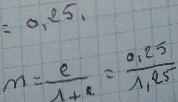 = 0,25.
n = e/1+e = 0,25/1,25